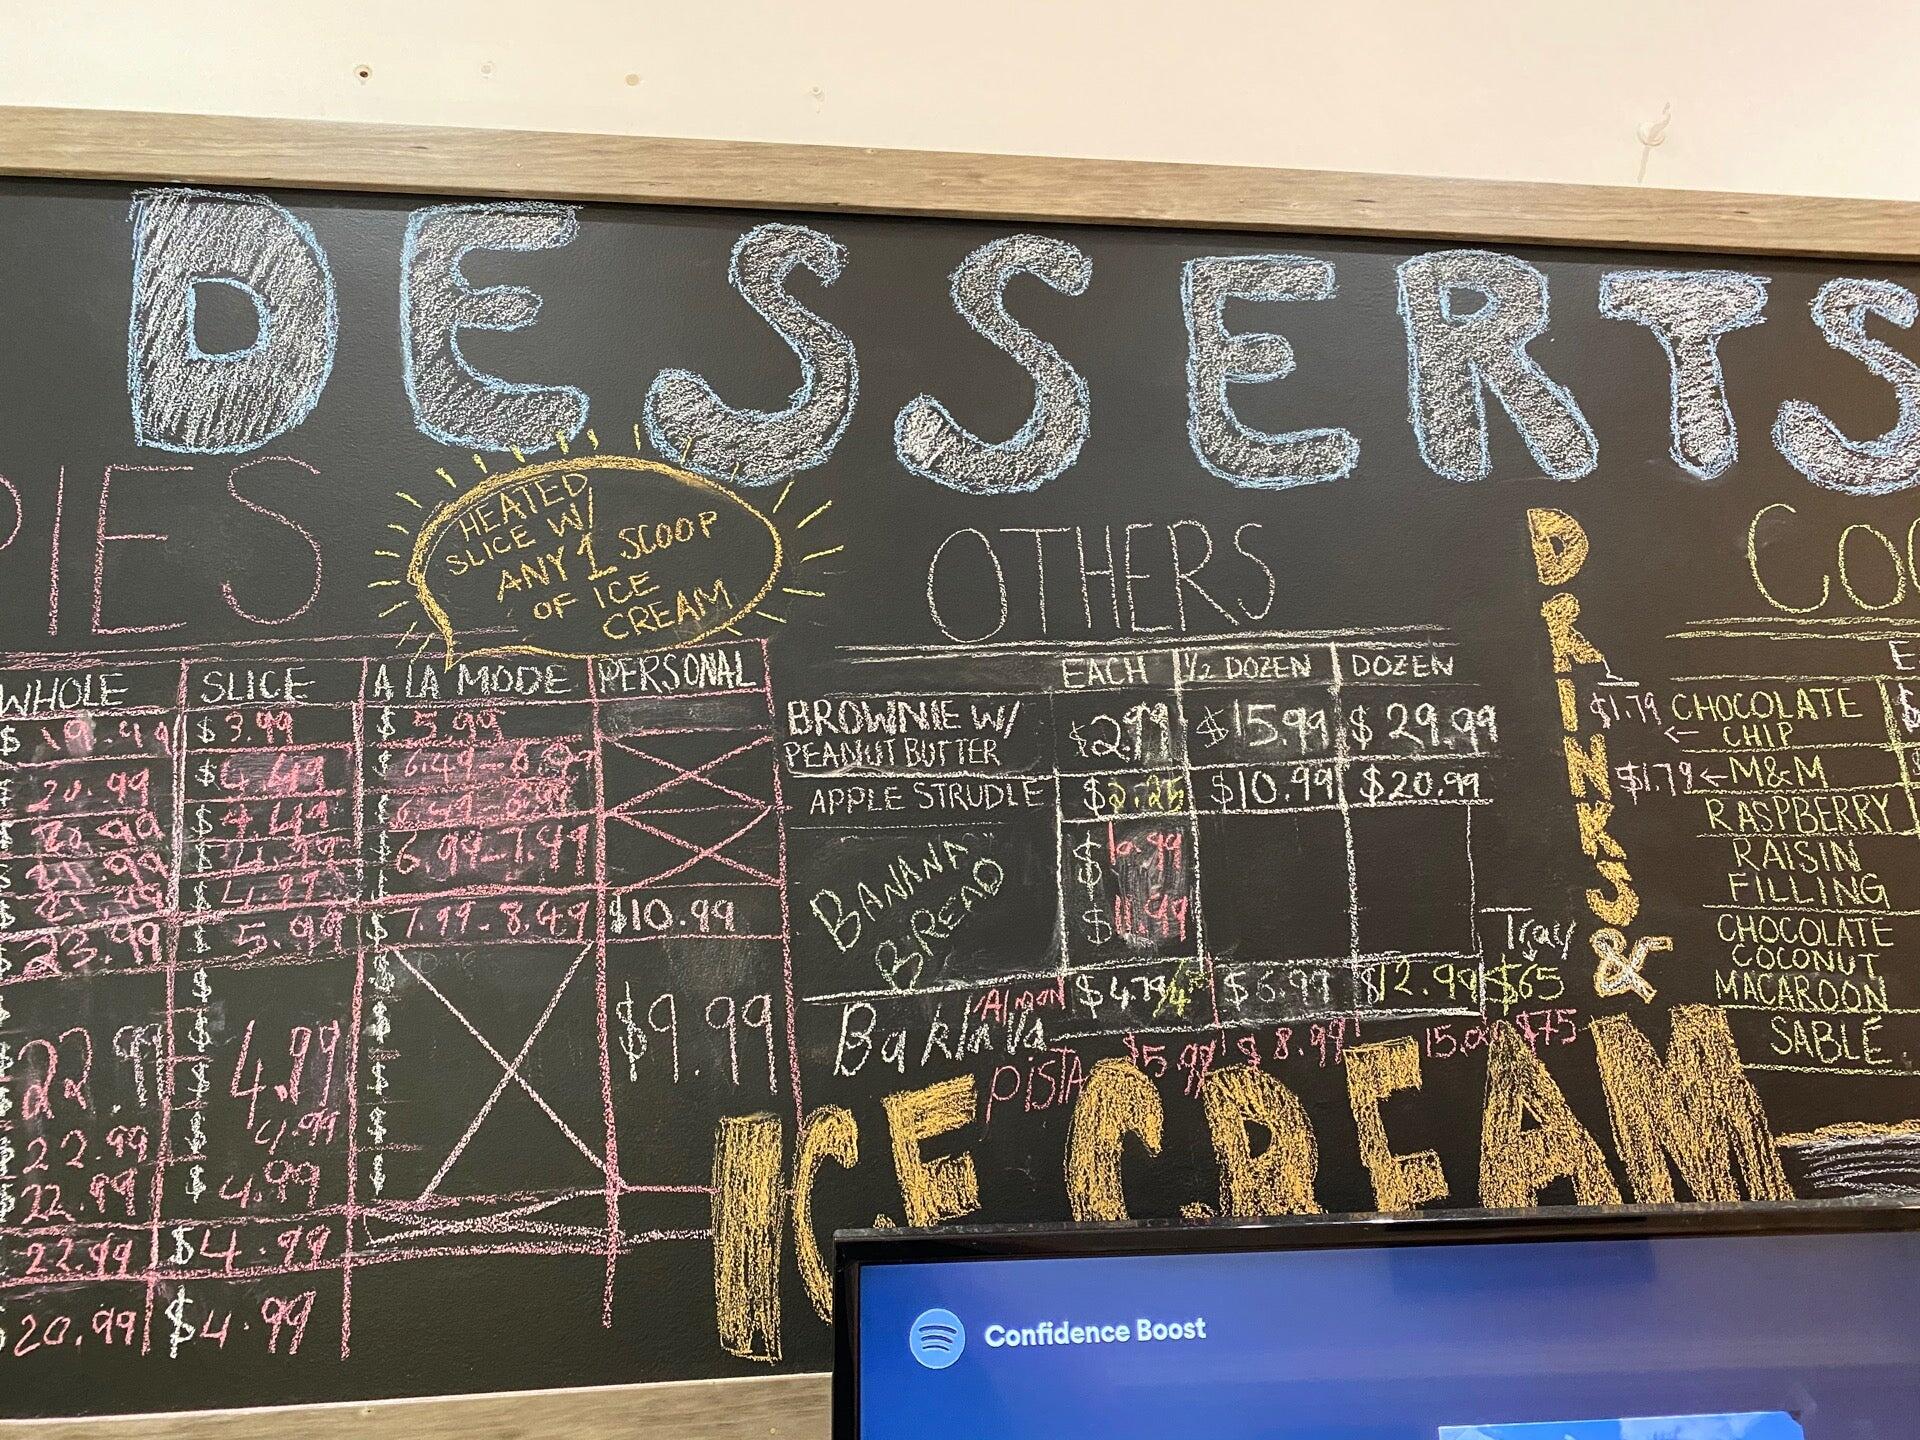 DESSERTS
PIES
HEATED
SLICE W/
ANY 1 SCOOP
OF ICE
CREAM
WHOLE SLICE A LA MODE PERSONAL
$3.99 $5.99
20.99 $4.49
$
$ 6.99-7.49
$
$23.99 $5.99 $7.99-8.49 $10.99
22.99 4.99 $9.99
22.99 $4.99
22.99 $4.99
22.99 $4.99
$20.99 $4.99
OTHERS
EACH 1/2 DOZEN DOZEN
BROWNIE W/
PEANUT BUTTER $2.99 $15.99 $29.99
APPLE STRUDLE $2.25 $10.99 $20.99
BANANA
BREAD
$6.99
$11.99
Tray
Baklava $6.99 $12.99 $65
PISTA $5.99 $8.99 $75
DRINKS &
ICE CREAM
COO
$1.79 CHOCOLATE
← CHIP
$1.79 ← M&M
RASPBERRY
RAISIN
FILLING
CHOCOLATE
COCONUT
MACAROON
SABLÉ
Confidence Boost